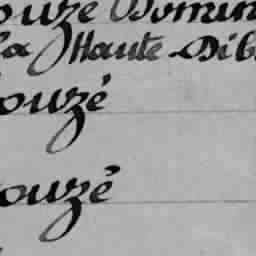 ouzé Domin
la Haute-Dib
ouzé
ouzé